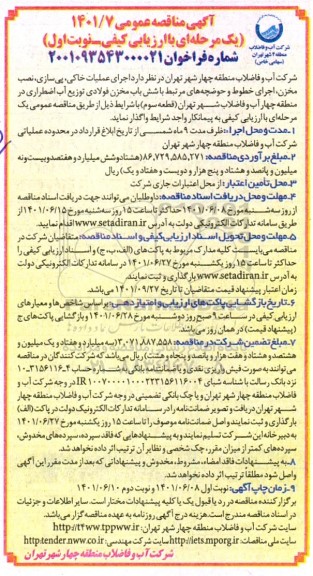 آگهی مناقصه عمومی ۱۴۰۱/۷
(یک مرحله‌ای با ارزیابی کیفی_نوبت اول)
شماره فراخوان ۲۰۰۱۰۹۳۵۴۳۰۰۰۰۲۱
شرکت آب و فاضلاب
منطقه ۴ شهر تهران
(سهامی خاص)
شرکت آب و فاضلاب منطقه چهار شهر تهران در نظر دارد اجرای عملیات خاکی، پی‌سازی، نصب
مخزن، اجرای خطوط و حوضچه‌های مرتبط با شش باب مخزن فولادی توزیع آب اضطراری در
منطقه چهار آب و فاضلاب شهر تهران (قطعه سوم) با شرایط ذیل از طریق مناقصه عمومی یک
مرحله‌ای با ارزیابی کیفی به پیمانکار واجد شرایط واگذار نماید.
۱_مدت و محل اجرا: ظرف مدت ۹ ماه شمسی از تاریخ ابلاغ قرارداد در محدوده عملیاتی
شرکت آب و فاضلاب منطقه چهار شهر تهران
۲_مبلغ برآوردی مناقصه: ۸۶,۷۲۹,۵۸۵,۲۷۱ (هشتاد و شش میلیارد و هفتصد و بیست و نه
میلیون و پانصد و هشتاد و پنج هزار و دویست و هفتاد و یک) ریال
۳_محل تأمین اعتبار: از محل اعتبارات جاری شرکت
۴_مهلت و محل دریافت اسناد مناقصه: داوطلبان می‌توانند جهت دریافت اسناد مناقصه
از روز سه‌شنبه مورخ ۱۴۰۱/۰۶/۰۸ حداکثر تا ساعت ۱۵ روز سه‌شنبه مورخ ۱۴۰۱/۰۶/۱۵ از
طریق سامانه تدارکات الکترونیکی دولت به آدرس www.setadiran.ir اقدام نمایند.
۵_مهلت و محل تحویل اسناد ارزیابی کیفی و اسناد مناقصه: متقاضیان شرکت در
مناقصه می‌بایست کلیه مدارک مربوط به پاکت‌های (الف، ب، ج) و اسناد ارزیابی کیفی را
حداکثر تا ساعت ۱۵ روز یکشنبه مورخ ۱۴۰۱/۰۶/۲۷ در سامانه تدارکات الکترونیکی دولت
به آدرس www.setadiran.ir بارگذاری و ثبت نمایند.
زمان اعتبار پیشنهاد قیمت متقاضیان تا تاریخ ۱۴۰۱/۰۹/۲۷ می‌باشد.
۶_تاریخ بازگشایی پاکت‌های ارزیابی و امتیازدهی: براساس شاخص‌ها و معیارهای
ارزیابی کیفی در ساعت ۹ صبح روز دوشنبه مورخ ۱۴۰۱/۰۶/۲۸ و بازگشایی پاکت‌های ج
(پیشنهاد قیمت) در همان روز می‌باشد.
۷_مبلغ تضمین شرکت در مناقصه: ۳,۰۷۱,۸۸۷,۵۵۸ (سه میلیارد و هفتاد و یک میلیون و
هشتصد و هشتاد و هفت هزار و پانصد و پنجاه و هشت) ریال می‌باشد که شرکت‌کنندگان در مناقصه
می‌توانند به صورت فیش واریزی نقدی و یا ضمانتنامه بانکی به شماره حساب ۳۱۵۶۱۱۶۰۰۴
نزد بانک رسالت با شناسه شبای IR در وجه شرکت آب و
فاضلاب منطقه چهار شهر تهران و یا چک بانکی تضمینی در وجه شرکت آب و فاضلاب منطقه چهار
شهر تهران دریافت و تصویر ضمانت‌نامه را در سامانه تدارکات الکترونیک دولت در پاکت (الف)
بارگذاری و ثبت نمایند و اصل ضمانت‌نامه موصوف را تا ساعت ۱۵ روز یکشنبه مورخ ۱۴۰۱/۰۶/۲۷
به دبیرخانه این شرکت تسلیم نمایند و به پیشنهادهایی که فاقد سپرده، سپرده‌های مخدوش،
سپرده‌های کمتر از میزان مقرر، چک شخصی و نظایر آن ترتیب اثر داده نخواهد شد.
۸_به پیشنهادات فاقد امضاء، مشروط، مخدوش و پیشنهاداتی که بعد از مدت مقرر این آگهی
واصل شود مطلقاً ترتیب اثر داده نخواهد شد.
۹_زمان چاپ آگهی: نوبت اول ۱۴۰۱/۰۶/۰۸ و نوبت دوم ۱۴۰۱/۰۶/۱۰
برگزارکننده مناقصه در رد یا قبول یک یا کلیه پیشنهادات مختار است. سایر اطلاعات و جزئیات
در اسناد مناقصه مندرج است. هزینه درج آگهی روزنامه به عهده مناقصه‌گزار می‌باشد.
سایت شرکت آب و فاضلاب منطقه چهار شهر تهران: http//t4ww.tppww.ir
سایت ملی مناقصات: http//iets.mporg.ir سایت شرکت مهندسی: http:tender.nww.co.ir
شرکت آب و فاضلاب منطقه چهار شهر تهران